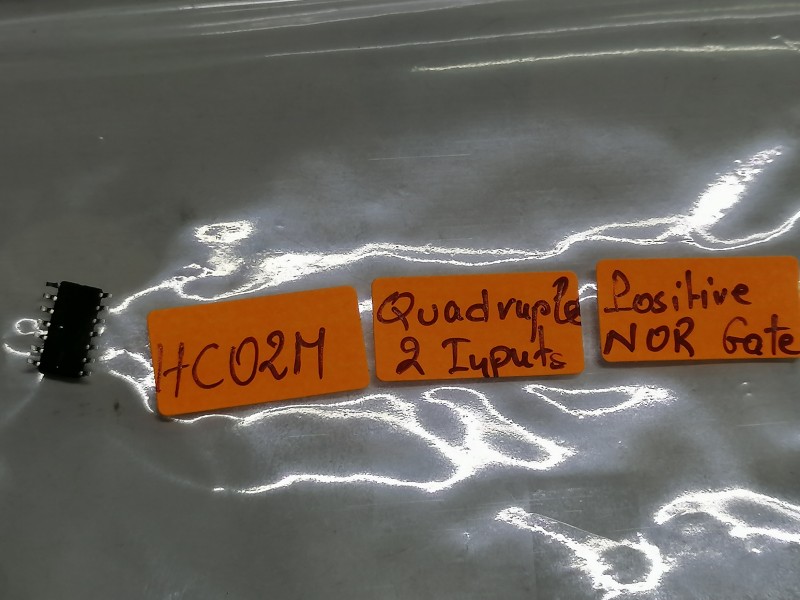 HC02M
Quadruple
2 Inputs
Positive
NOR Gate